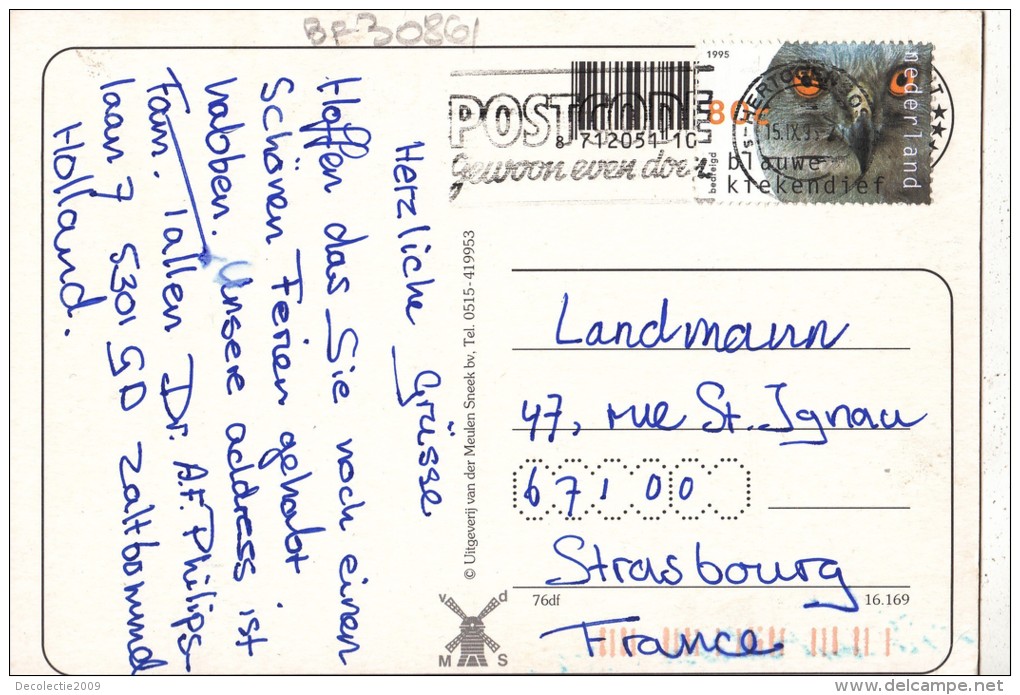 BF30861
POSTCODE
gewoon even doen
8 712051 10
1995
80c
nederland
bedreigd
blauwe
kiekendief
15.IX.9
Herzliche Grüsse
Hoffen das Sie noch einen
Schönen Ferien gehabt
habben. Unsere address ist
Fam. Tallen Dr. A.F. Philips
laan 7 5301 GD Zaltbommel
Holland.
© Uitgeverij van der Meulen Sneek bv, Tel. 0515-419953
Landmann
47, rue St. Ignau
67100
Strasbourg
France
76df
16.169
v d
M S
Decolectie2009